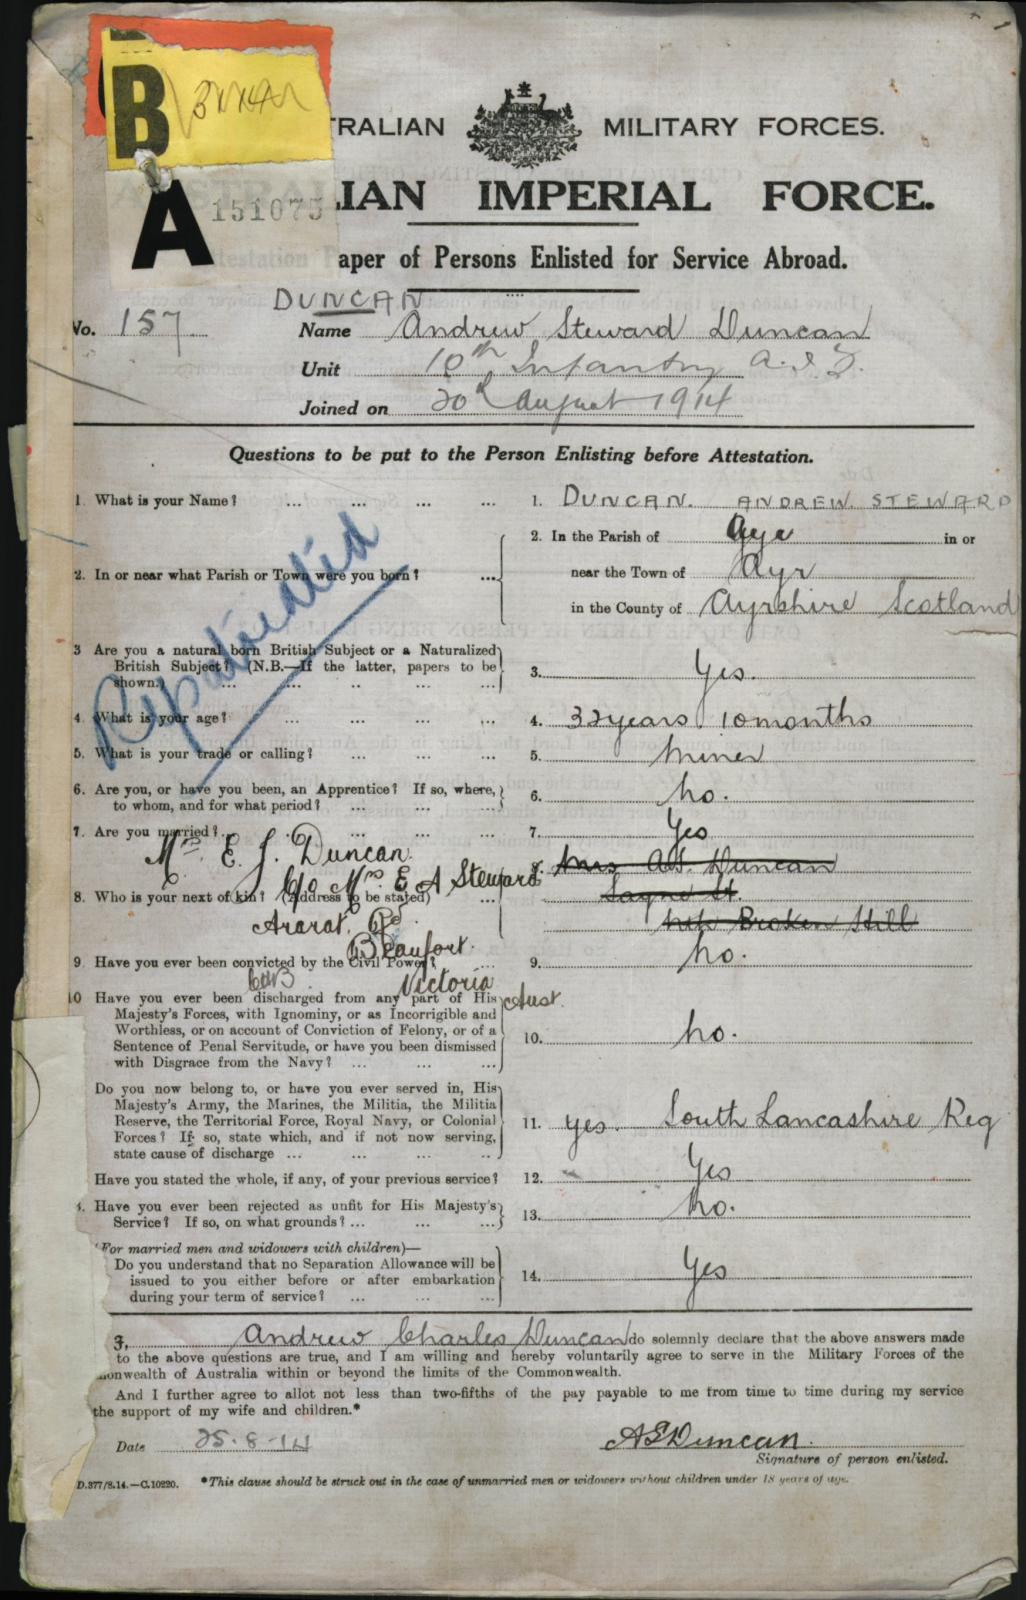 B
A 151075
TRALIAN MILITARY FORCES.
LIAN IMPERIAL FORCE.
aper of Persons Enlisted for Service Abroad.
DUNCAN
No. 157 Name Andrew Steward Duncan
Unit 10th Infantry A.I.F.
Joined on 20th August 1914
Questions to be put to the Person Enlisting before Attestation.
1. What is your Name? ... ... ... 1. DUNCAN. ANDREW. STEWARD
2. In or near what Parish or Town were you born? ... 2. In the Parish of Aye in or
near the Town of Ayr
in the County of Ayrshire Scotland
Repatriated
3 Are you a natural born British Subject or a Naturalized
British Subject? (N.B.—If the latter, papers to be
shown.) ... ... .. ... ... 3. Yes.
4. What is your age? ... ... ... 4. 32 years 10 months
5. What is your trade or calling? ... ... ... 5. Miner
6. Are you, or have you been, an Apprentice? If so, where,
to whom, and for what period? ... ... ... 6. No.
7. Are you married? ... ... ... ... 7. Yes
Mrs. E. J. Duncan
C/o Mrs. E A Steward
8. Who is your next of kin? (Address to be stated) ... 8. Mrs A.S. Duncan
St.
Nth Broken Hill
Ararat. Rd
Beaufort.
9. Have you ever been convicted by the Civil Power? ... 9. No.
Victoria
Aust.
10 Have you ever been discharged from any part of His
Majesty's Forces, with Ignominy, or as Incorrigible and
Worthless, or on account of Conviction of Felony, or of a
Sentence of Penal Servitude, or have you been dismissed
with Disgrace from the Navy? ... ... ... 10. No.
Do you now belong to, or have you ever served in, His
Majesty's Army, the Marines, the Militia, the Militia
Reserve, the Territorial Force, Royal Navy, or Colonial
Forces? If so, state which, and if not now serving,
state cause of discharge ... ... ... .. 11. yes. South Lancashire Reg
Have you stated the whole, if any, of your previous service? 12. Yes
Have you ever been rejected as unfit for His Majesty's
Service? If so, on what grounds? ... ... ... 13. No.
(For married men and widowers with children)—
Do you understand that no Separation Allowance will be
issued to you either before or after embarkation
during your term of service? ... ... ... 14. Yes
I, Andrew Charles Duncan do solemnly declare that the above answers made
to the above questions are true, and I am willing and hereby voluntarily agree to serve in the Military Forces of the
monwealth of Australia within or beyond the limits of the Commonwealth.
And I further agree to allot not less than two-fifths of the pay payable to me from time to time during my service
the support of my wife and children.*
Date 25.8.14 A S Duncan.
Signature of person enlisted.
D.377/8.14.—C.10220. *This clause should be struck out in the case of unmarried men or widowers without children under 18 years of age.